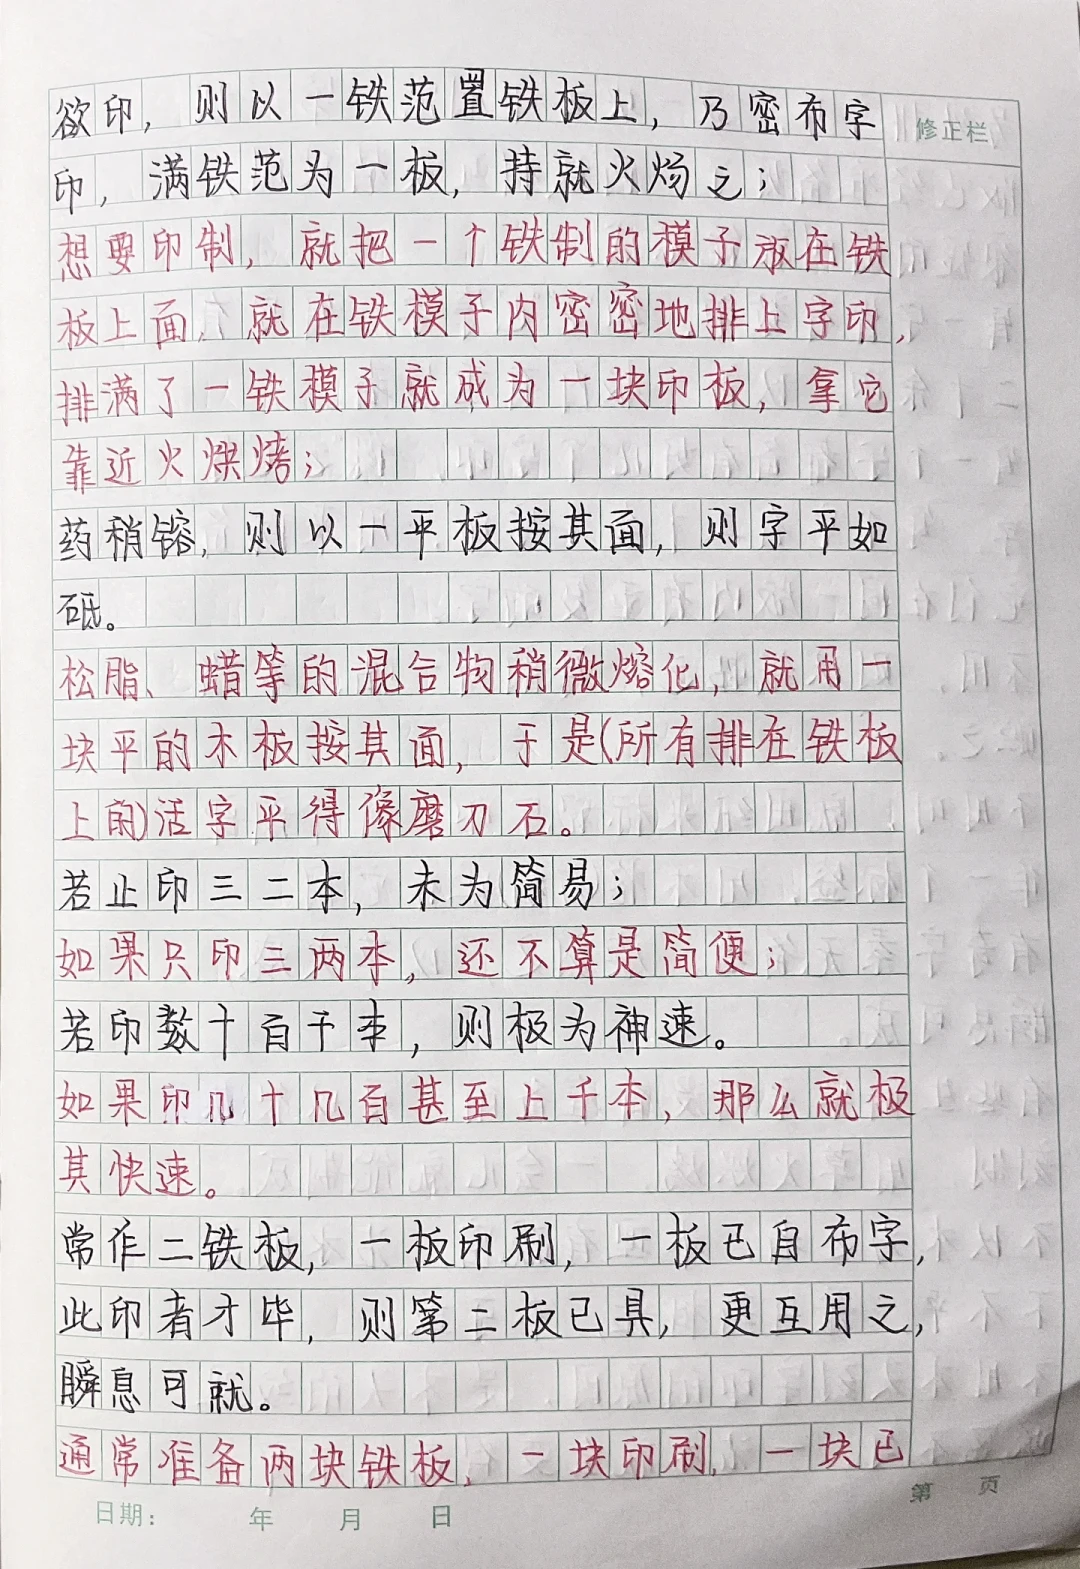 欲印，则以一铁范置铁板上，乃密布字
修正栏
印，满铁范为一板，持就火炀之；
想要印制，就把一个铁制的模子放在铁
板上面，就在铁模子内密密地排上字印，
排满了一铁模子就成为一块印板，拿它
靠近火烘烤；
药稍镕，则以一平板按其面，则字平如
砥。
松脂、蜡等的混合物稍微熔化，就用一
块平的木板按其面，于是(所有排在铁板
上的)活字平得像磨刀石。
若止印三二本，未为简易；
如果只印三两本，还不算是简便；
若印数十百千本，则极为神速。
如果印几十几百甚至上千本，那么就极
其快速。
常作二铁板，一板印刷，一板已自布字，
此印者才毕，则第二板已具，更互用之，
瞬息可就。
通常准备两块铁板，一块印刷，一块已
第 页
日期： 年 月 日